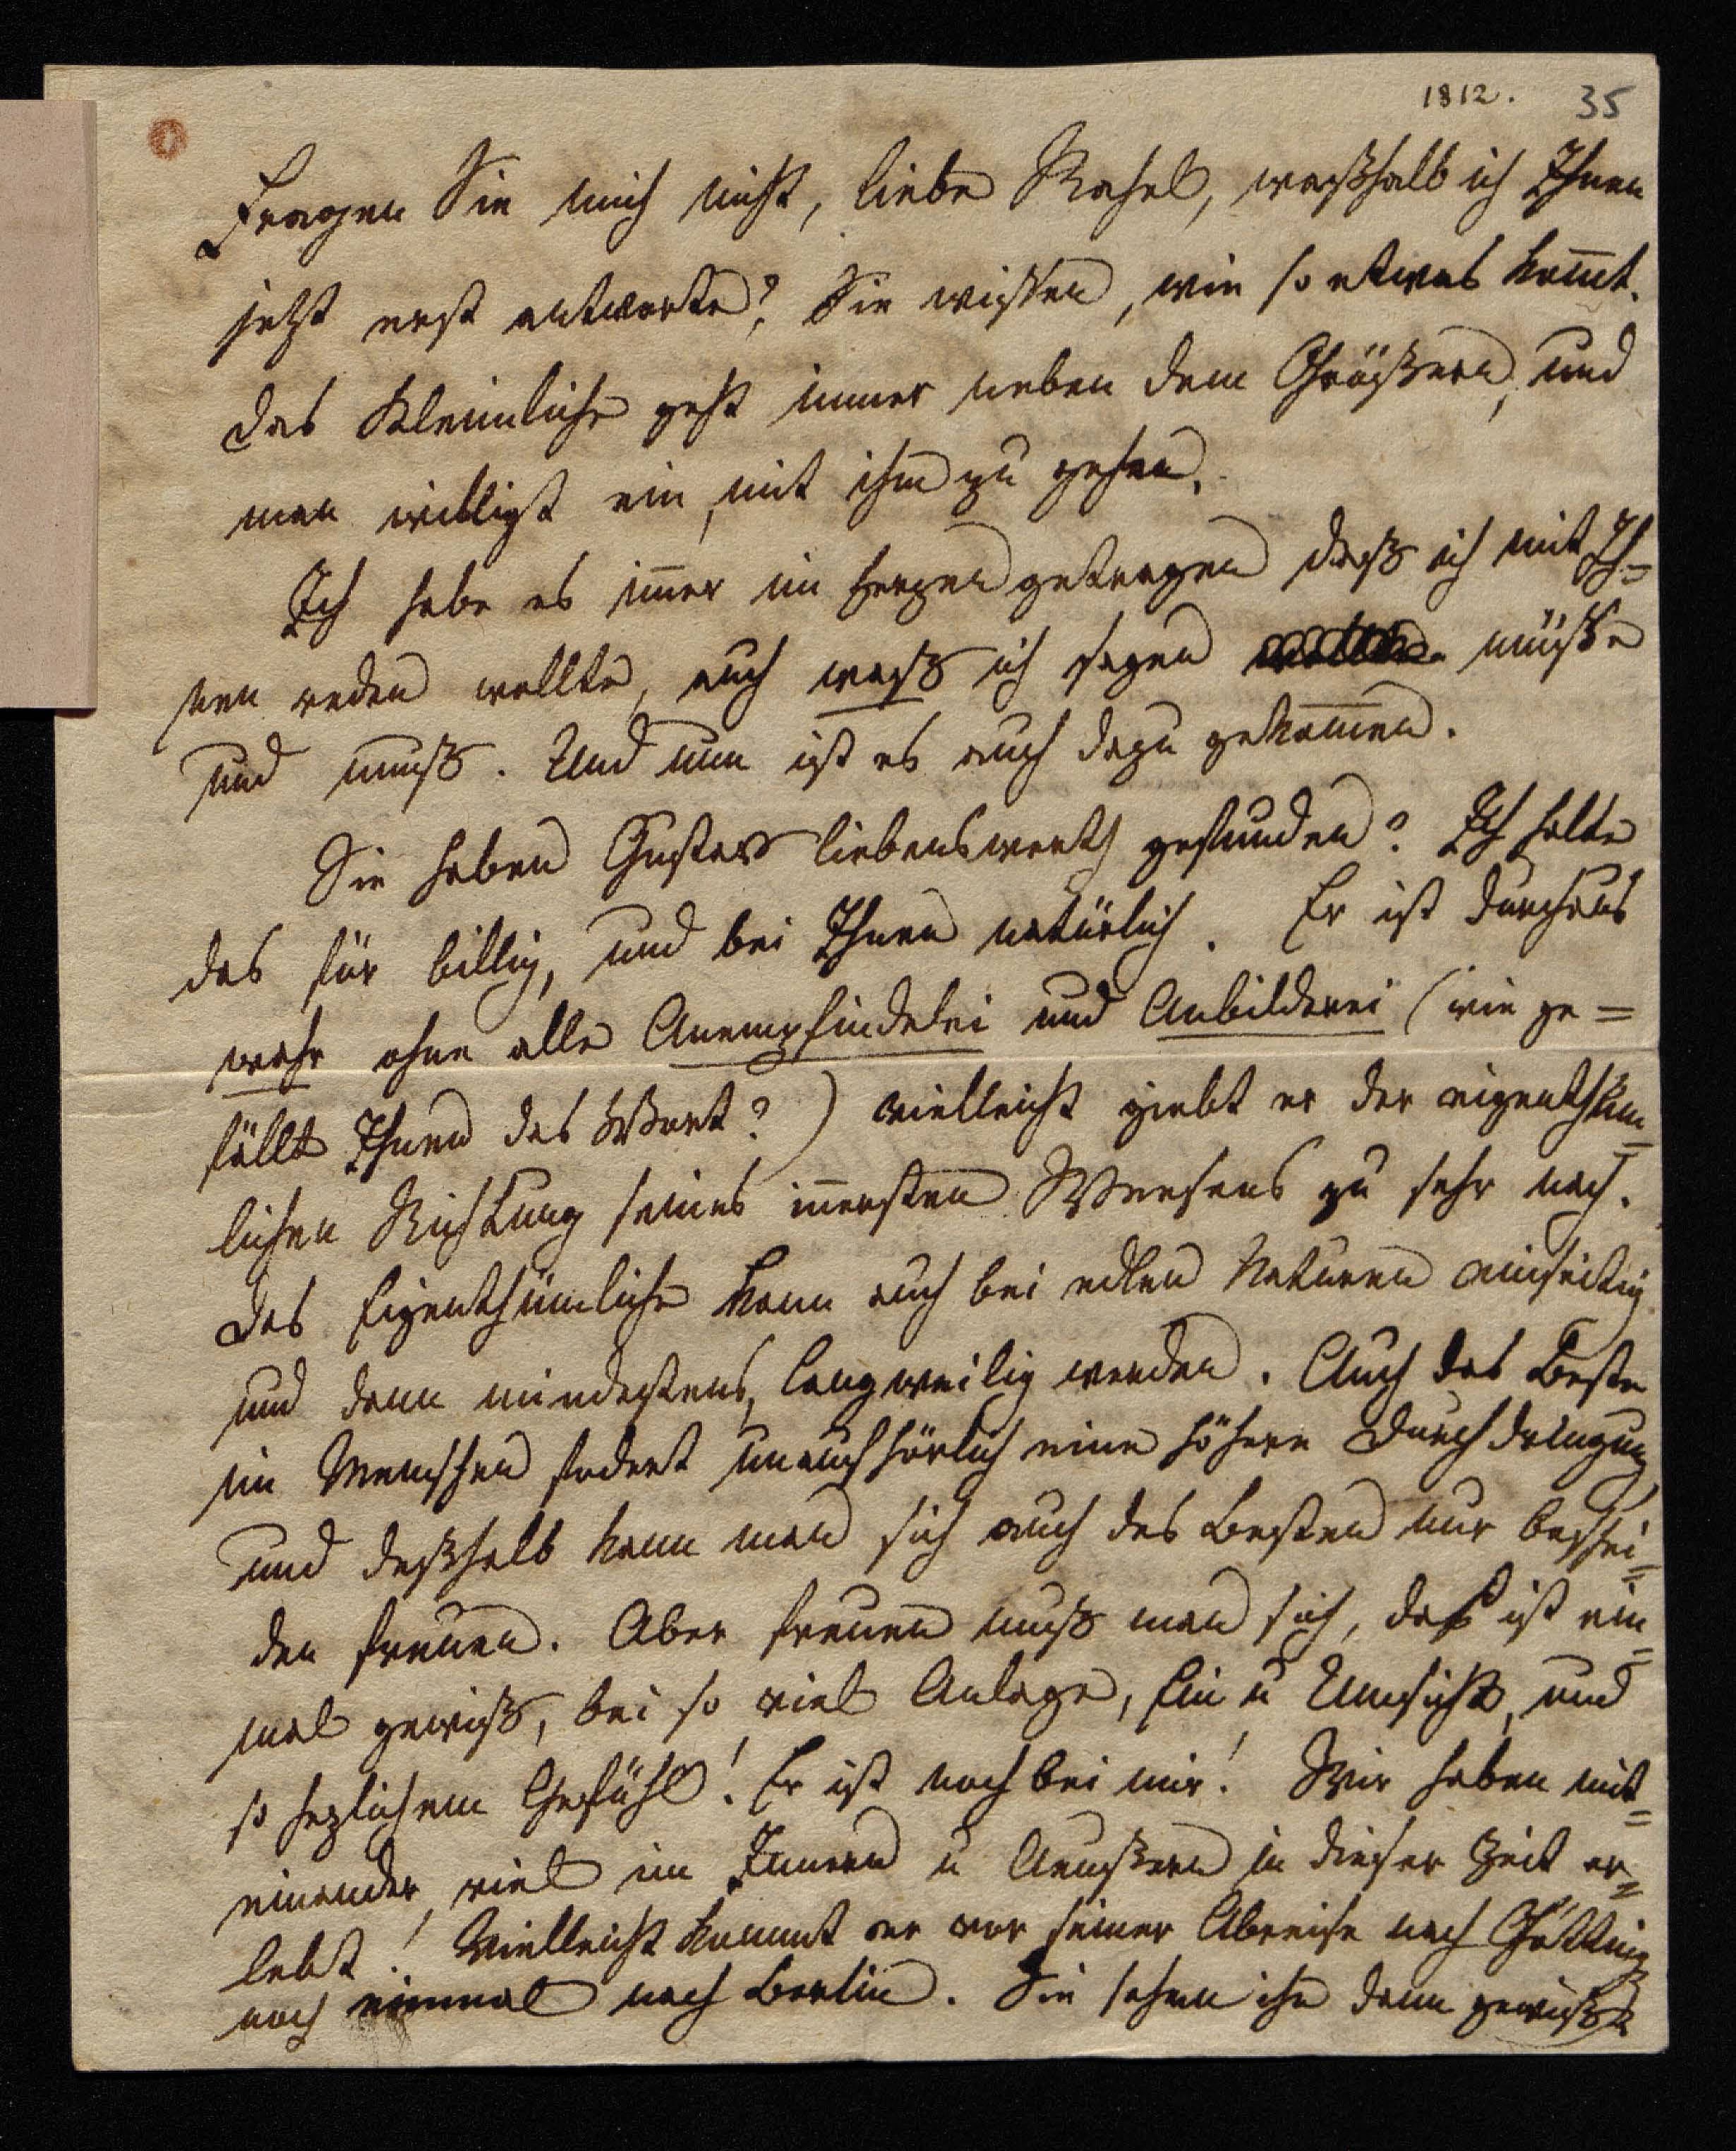 1812. 35
Fragen Sie mich nicht, liebe Rahel, weßhalb ich Ihnen
jetzt erst antworte? Sie wissen, wie so etwas kom̅t.
Das Kleinliche geht immer neben dem Größern, und
man willigt ein, mit ihm zu gehen.
Ich habe es im̅er im Herzen getragen daß ich mit Ih=
nen reden wollte, auch waß ich sagen müsse
und muß. Und nun ist es auch dazu gekom̅en.
Sie haben Gustav liebenswerth gefunden? Ich halte
das für billig, und bei Ihnen natürlich. Er ist durchaus
wahr ohne alle Anempfindelei und Anbilderei (wie ge=
fällt Ihnen das Wort?) vielleicht giebt er der eigenthüm=
lichen Richtung seines in̅ersten Wesens zu sehr nach.
Das Eigenthümliche kann auch bei edlen Naturen einseitig
und dann mindestens, langweilig werden. Auch das Beste
im Menschen fodert unaufhörlich eine höhere Durchdringung,
und deßhalb kann man sich auch des Besten nur beschei=
den freuen. Aber freuen muß man sich, daß ist ein=
mal gewiß, bei so viel Anlage, Ein u Umsicht, und
so herzlichem Gefühl! Er ist noch bei mir! Wir haben mit=
einander, viel im Innern u Aeußern in dieser Zeit er=
lebt! Vielleicht kommt er vor seiner Abreise nach Götting
noch einmal nach Berlin. Sie sehen ihn dann gewiß